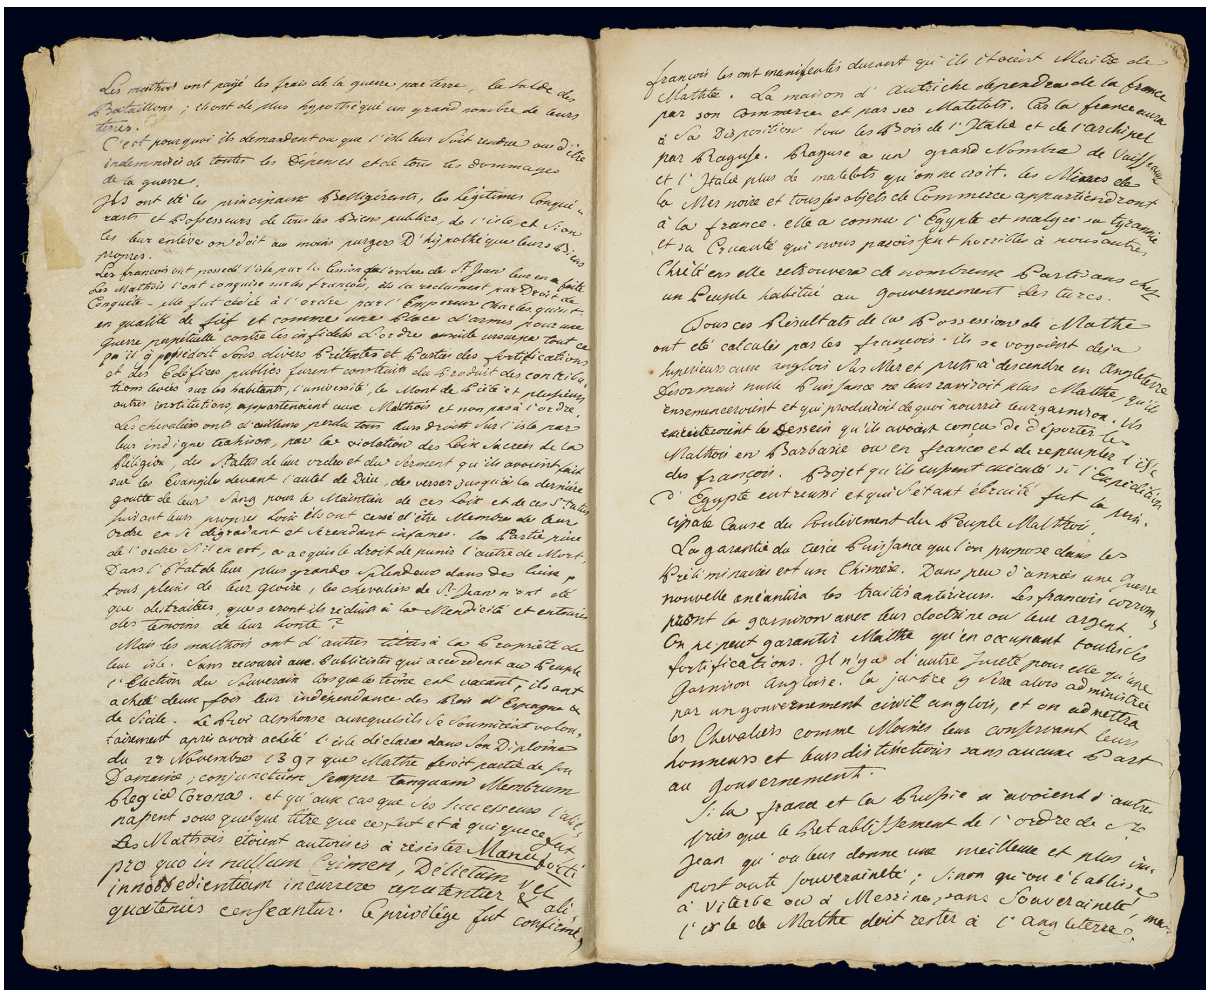 Les mathois ont payé les frais de la guerre par terre, la solde des
Bataillons; et ont de plus hypothéqué un grand nombre de leurs
terres.
C'est pourquoi ils demandent ou que l'isle leur soit rendue ou d'être
indemnisés de toutes les dépences et de tous les dommages
de la guerre.
Ils ont été les principaux Belligérents, les légitimes Conqué-
rants et Possesseurs de tous les Biens publics, de l'isle et si on
les leur enlève on doit au moins purger d'hypothéque leurs Biens
propres.
Les francois ont possedé l'isle par la Cession que l'ordre de St Jean leur en a faite
Les Mathois l'ont conquise sur les francois, ils la réclament par Droit de
Conquete - elle fut cédée à l'ordre par l'Empereur Charles quint
en qualité de fief et comme une Place d'armes pour une
guerre perpétuelle contre les infidels L'ordre ensuite usurpa tout ce
qu'il y possédoit sous divers Prétextes et Parties des fortifications
et des Edifices publics furent construits du Produit des contribu-
tions levées sur les habitants, l'université, le Mont de Piété et plusieurs
autres institutions, appartenoient aux Mathois et non pas à l'ordre.
Les chevaliers ont d'ailleurs perdu tous leurs droits sur l'isle par
leur indigne trahison, par la violation des Loix Sacrées de la
Réligion, des Statuts de leur ordre et du serment qu'ils avoient fait
sur les Evangiles devant l'autel de Dieu, de verser jusqu'à la derniere
goutte de leur sang pour le Maintien de ces Loix et de ces Statuts
suivant leurs propres Loix ils ont cessé d'être Membres de leur
ordre en se dégradant et se rendant infames. la Partie saine
de l'ordre s'il en est, a acquis le droit de punir l'autre de Mort.
Dans l'Etat de leur plus grande splendeur dans des lieux
tous pleins de leur gloire, les chevaliers de St Jean n'ont été
que des traitres, que seront ils réduits à la Mendicité et entourés
des témoins de leur honte?
Mais les malthois ont d'autres titres à la Propriété de
leur isle. Sans recourir aux Publicistes qui accordent au Peuple
l'Election du Souverain lorsque le trône est vacant, ils ont
acheté deux fois leur indépendance des Rois d'Espagne &
de Sicile. Le Roi alphonse auxquels ils se soumirent volon-
tairement après avoir acheté l'isle déclara dans son Diplome
du 27 Novembre 1397 que Malthe feroit partie de son
Domaine; conjunctum semper tanquam Membrum
Regiæ Corona. et qu'aux cas que ses successeurs l'alié-
napent sous quelque titre que ce fut et à qui que ce fut
Les Mathois étoient autorisés à résister Manu forti
pro quo in nullum Crimen, Delictum vel
innobbedientium incurrere reputentur & ali-
quatenies censeantur. Ce privilége fut confirmé,
francois les ont manifestés durant qu'ils étoient Maitre de
Malthe. La maison d'Autriche dependra de la france
par son Commerce et par ses Matelots. Car la france aura
à sa Disposition tous les Bois de l'Italie et de l'archipel
par Raguse. Raguse a un grand Nombre de Vaisseaux
et l'Italie plus de matelots qu'on ne croit. les Mines de
la Mer noire et tous les objets de Commerce appartiendront
à la france. elle a connu l'Egypte et malgré sa tyrannie
et sa Cruauté qui nous paroissent horribles à nous autres
Chrétiens elle retrouvera de nombreux Partisans chez
un Peuple habitué au gouvernement des turcs.
Tous ces Résultats de la Possession de Malthe
ont été calculés par les françois. ils se voyoient deja
supérieurs aux anglois sur Mer et prets à descendre en Angleterre
Desormais nulle Puissance ne leur raviroit plus Malthe, qu'ils
ensemenceroient et qui produiroit de quoi nourrir leur garnison. Ils
exécuteroient le Dessein qu'ils avoient conçu de déporter les
Malthois en Barbarie ou en france et de repeupler l'isle
des françois. Projet qu'ils eussent exécuté si l'Expédition
d'Egypte eut reussi et qui s'étant ébruité fut la prin-
cipale Cause du soulevement du Peuple Malthois
La garantie du tierce Puissance que l'on propose dans les
Préliminaires est un Chimére. Dans peu d'années une guerre
nouvelle anéantira les traités antérieurs. Les francois corrom-
pront la garnison avec leur doctrine ou leur argent.
On ne peut garantir Malthe qu'en occupant toutes ses
fortifications. Il n'y a d'autre sureté pour elle qu'une
Garnison Angloise. la justice y sera alors administrée
par un gouvernement civil anglois, et on admettra
les Chevaliers comme Moines leur conservant leurs
honneurs et leurs distinctions sans aucune Part
au gouvernement.
Si la france et la Russie n'avoient d'autre
que le Retablissement de l'ordre de St
Jean qu'on leur donne une meilleure et plus im-
portante souveraineté; sinon qu'on l'établisse
à Viterbe ou à Messine, sans souveraineté, mais
l'isle de Malthe doit rester à l'angleterre.